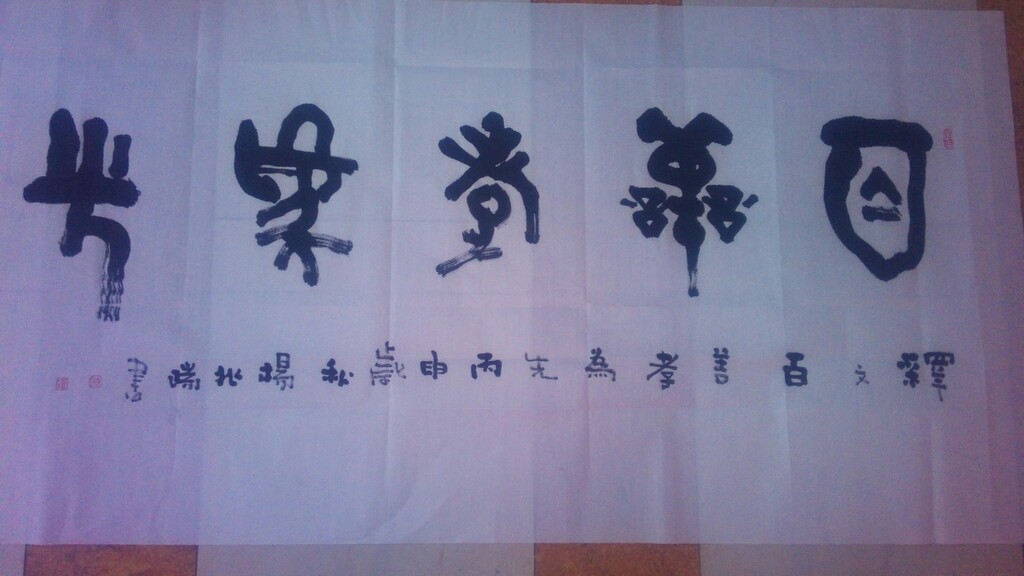 百善孝為先
釋文百善孝為先丙申歲秋楊兆瑞書